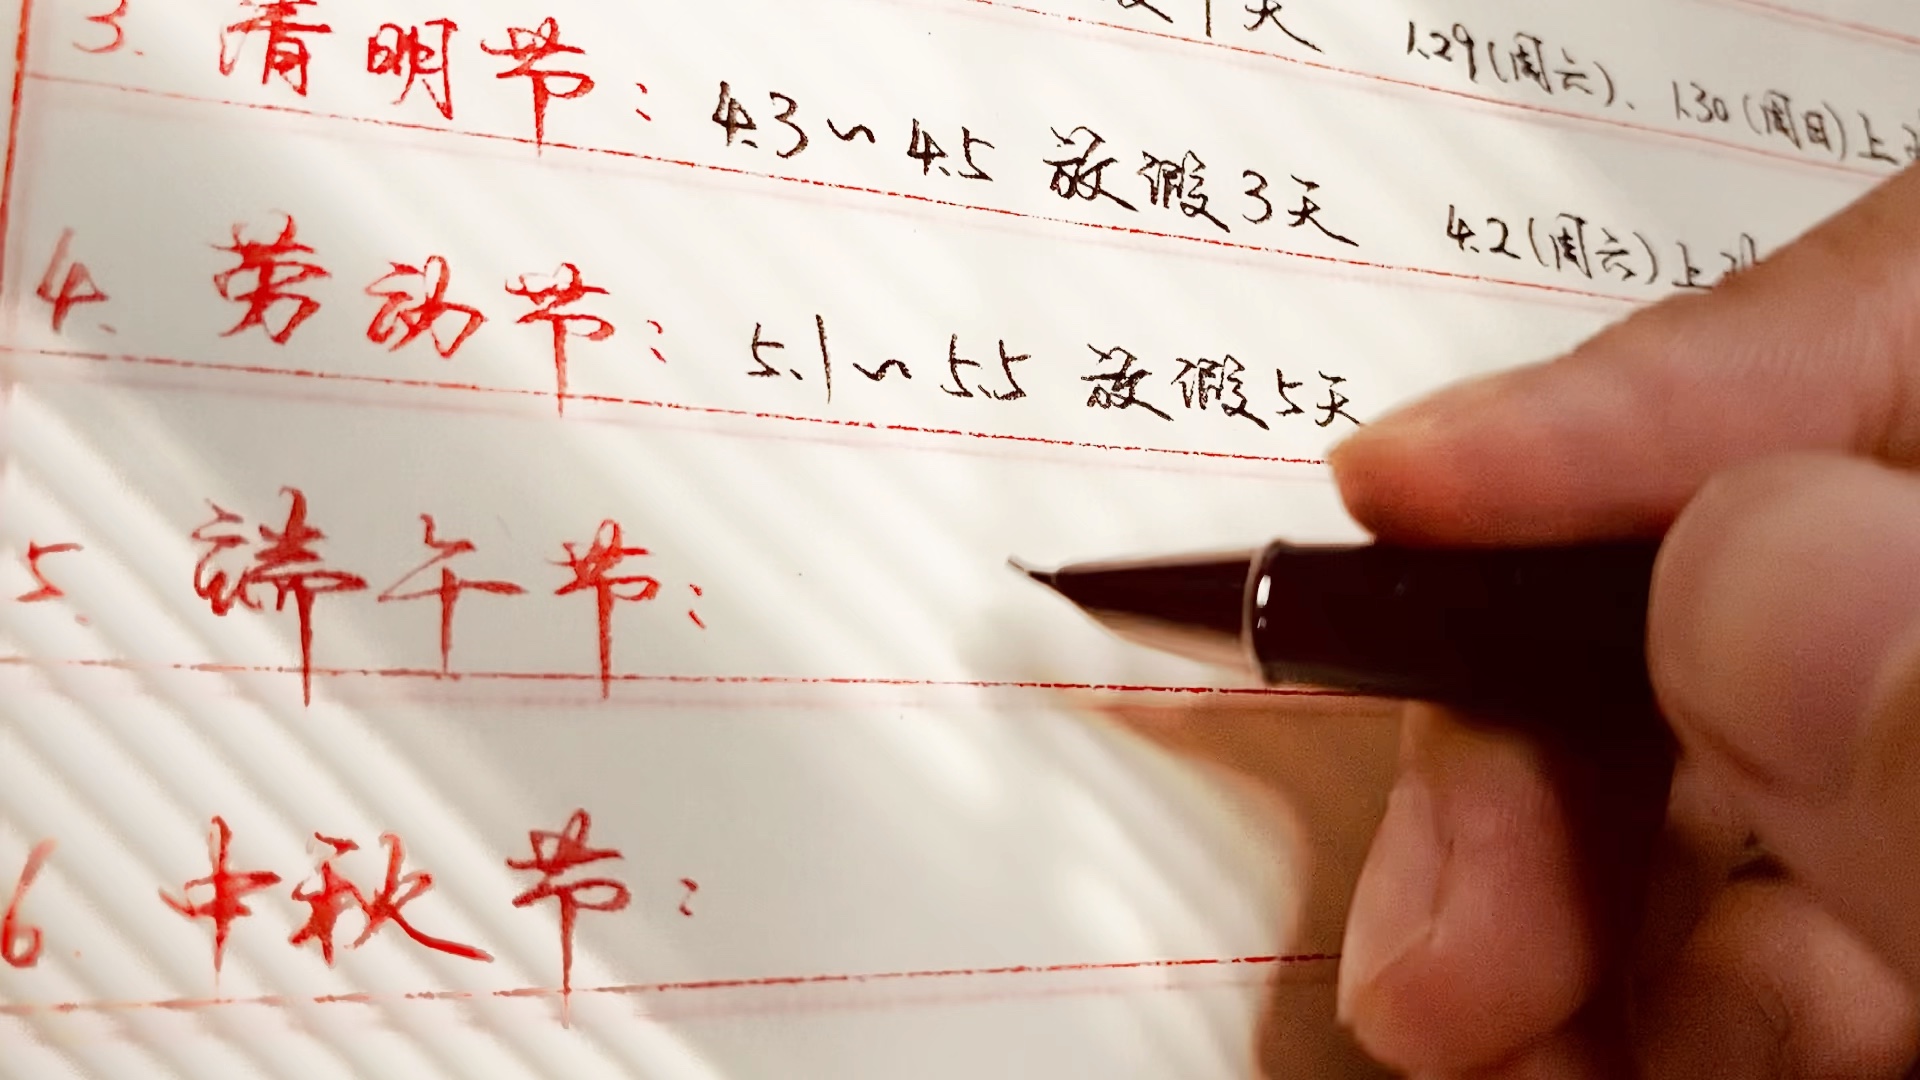 天 1.29(周六)、1.30(周日)上
3. 清明节: 4.3~4.5 放假3天 4.2(周六)上
4. 劳动节: 5.1~5.5 放假5天
5. 端午节:
6. 中秋节: